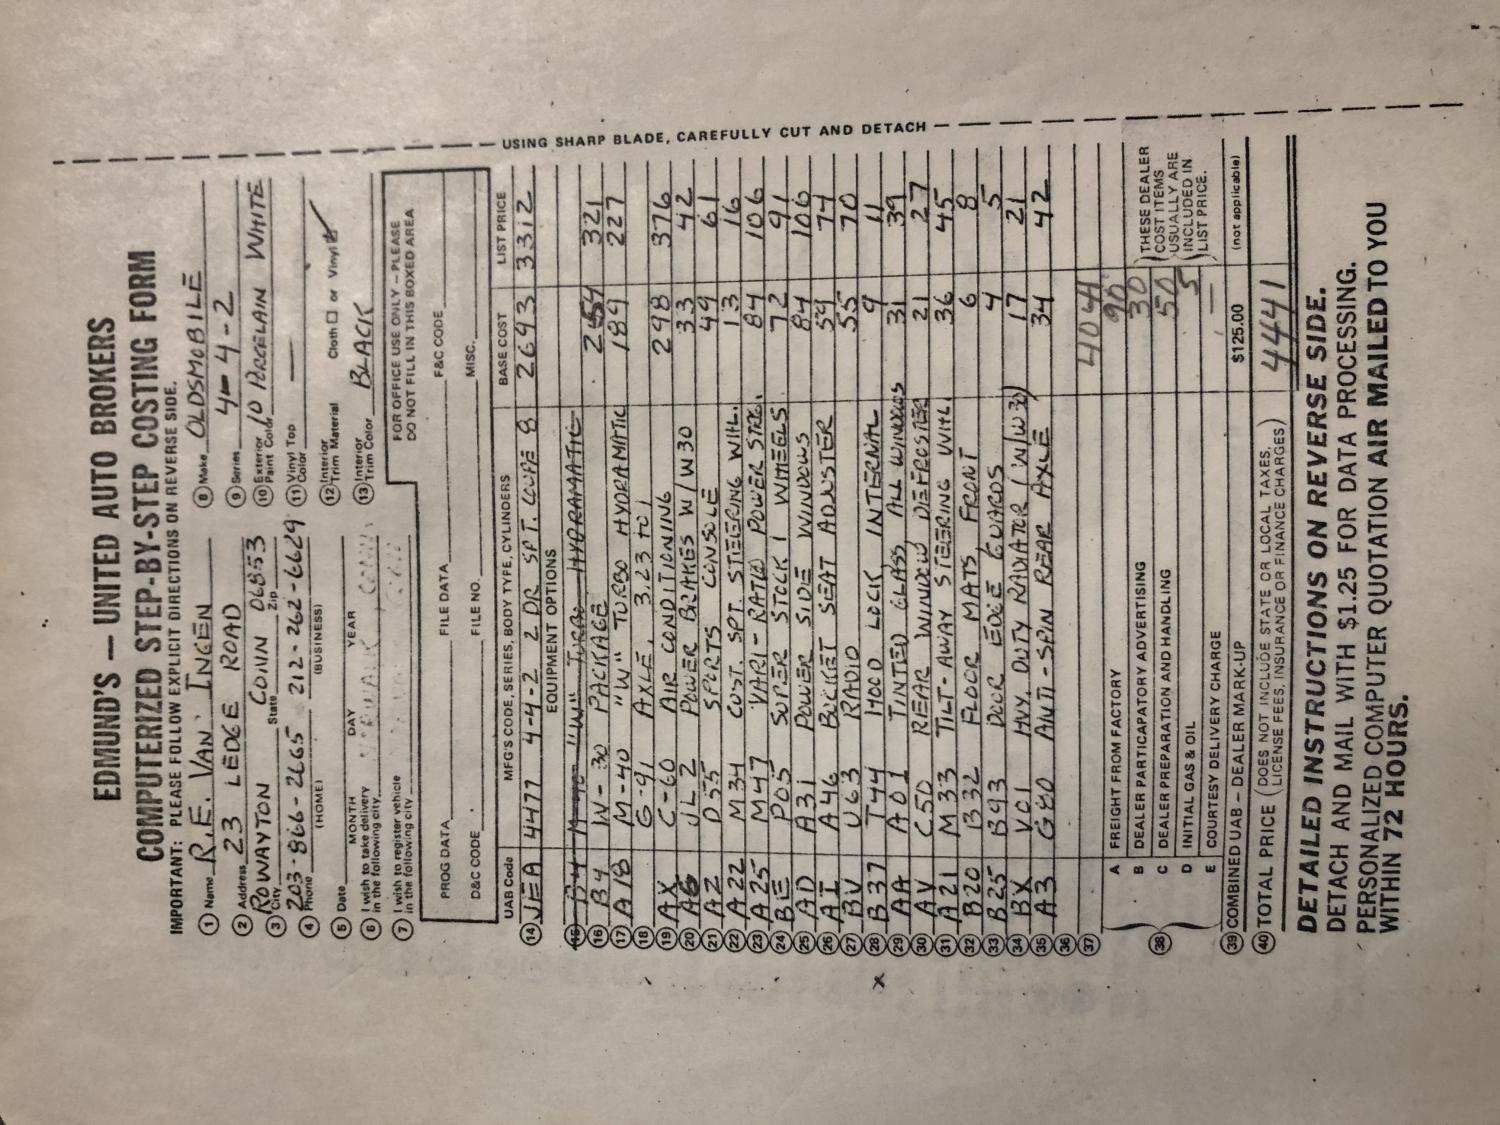 EDMUND'S — UNITED AUTO BROKERS
COMPUTERIZED STEP-BY-STEP COSTING FORM
IMPORTANT: PLEASE FOLLOW EXPLICIT DIRECTIONS ON REVERSE SIDE.
1 Name R.E. VAN INGEN
2 Address 23 LEDGE ROAD
3 City ROWAYTON State CONN Zip 06853
4 Phone 203-866-2665 (HOME) 212-262-6629 (BUSINESS)
5 Date MONTH DAY YEAR
6 I wish to take delivery in the following city
7 I wish to register vehicle in the following city
8 Make OLDSMOBILE
9 Series 4-4-2
10 Exterior Paint Color 10 PORCELAIN WHITE
11 Vinyl Top Color —
12 Interior Trim Material Cloth □ or Vinyl ☑
13 Interior Trim Color BLACK
FOR OFFICE USE ONLY – PLEASE
DO NOT FILL IN THIS BOXED AREA
PROG DATA FILE DATA F&C CODE
D&C CODE FILE NO. MISC.
UAB Code MFG'S CODE, SERIES, BODY TYPE, CYLINDERS BASE COST LIST PRICE
14 JEA 4477 4-4-2 2 DR SPT. COUPE 8 2693 3312
EQUIPMENT OPTIONS
15 "W" TURBO HYDRAMATIC
16 B4 W-30 PACKAGE 321
17 A18 M-40 "W" TURBO HYDRAMATIC 189 227
18 G-91 AXLE, 3.23 TO 1
19 AX C-60 AIR CONDITIONING 298 376
20 A6 JL2 POWER BRAKES W/W30 33 42
21 AZ D55 SPORTS CONSOLE 49 61
22 A22 M34 CUST. SPT. STEERING WHL. 13 16
23 A25 M47 VARI-RATIO POWER STRG. 84 106
24 BE P05 SUPER STOCK I WHEELS 72 91
25 AD A31 POWER SIDE WINDOWS 84 106
26 AI A46 BUCKET SEAT ADJUSTER 59 74
27 BV U63 RADIO 55 70
28 B37 T44 HOOD LOCK INTERNAL 9 11
29 AA A01 TINTED GLASS ALL WINDOWS 31 39
30 AV C50 REAR WINDOW DEFROSTER 21 27
31 A21 M33 TILT-AWAY STEERING WHL. 36 45
32 B20 B32 FLOOR MATS, FRONT 6 8
33 B25 B93 DOOR EDGE GUARDS 4 5
34 BX V01 HVY. DUTY RADIATOR (W/W30) 17 21
35 A3 G80 ANTI-SPIN REAR AXLE 34 42
36
37 4041
38 A FREIGHT FROM FACTORY 90
B DEALER PARTICAPATORY ADVERTISING 30
C DEALER PREPARATION AND HANDLING 50
D INITIAL GAS & OIL 5
E COURTESY DELIVERY CHARGE —
THESE DEALER
COST ITEMS
USUALLY ARE
INCLUDED IN
LIST PRICE.
39 COMBINED UAB – DEALER MARK-UP $125.00 (not applicable)
40 TOTAL PRICE (DOES NOT INCLUDE STATE OR LOCAL TAXES, LICENSE FEES, INSURANCE OR FINANCE CHARGES) 4441
DETAILED INSTRUCTIONS ON REVERSE SIDE.
DETACH AND MAIL WITH $1.25 FOR DATA PROCESSING.
PERSONALIZED COMPUTER QUOTATION AIR MAILED TO YOU
WITHIN 72 HOURS.
USING SHARP BLADE, CAREFULLY CUT AND DETACH